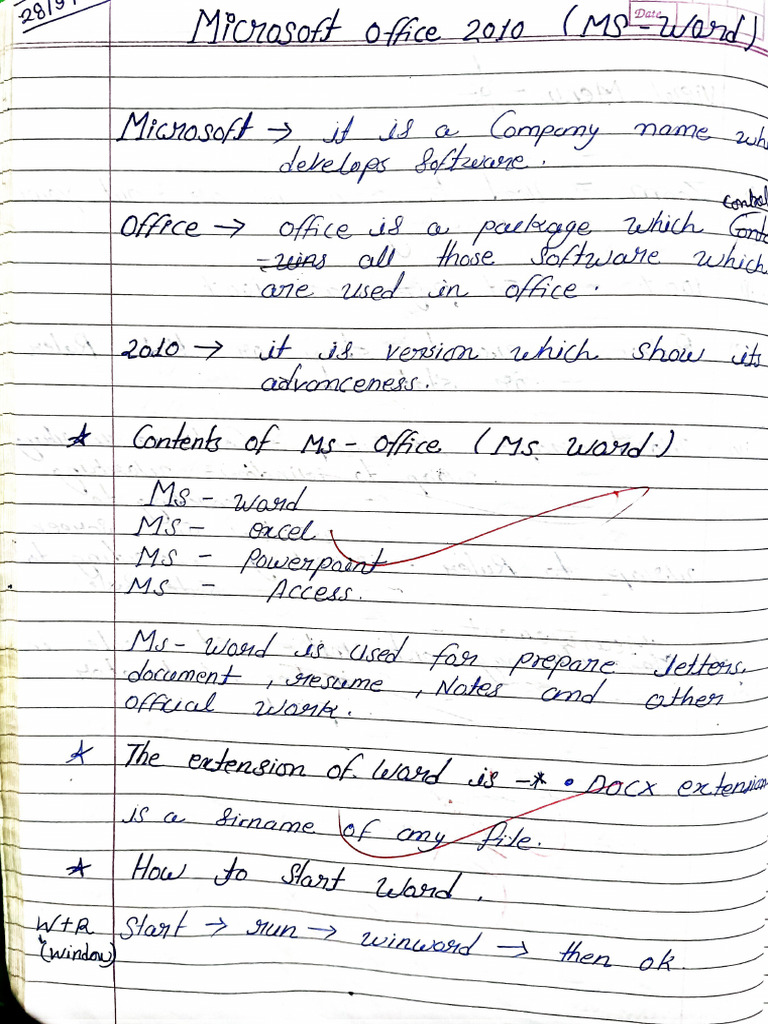 28/9/
Date
Microsoft office 2010 (MS-Word)
Microsoft → it is a Company name
develops software.
control
Office → office is a package which
all those software which
are used in office.
2010 → it is version which show its
advanceness.
* Contents of Ms-office (Ms Word)
Ms - word
Ms - excel
Ms - Powerpoint
Ms - Access.
Ms-word is used for prepare letters,
document, resume, Notes and other
official work.
* The extension of word is -* .DOCX extension
is a sirname of any file.
* How to start word.
W+R Start → run → winword → then ok.
(window)